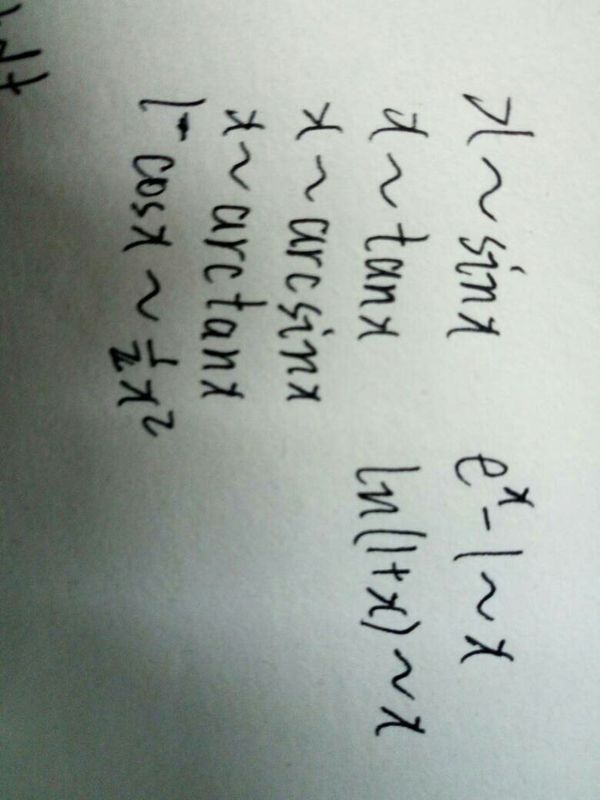 x ~ sinx    e^x - 1 ~ x
x ~ tanx    ln(1+x) ~ x
x ~ arcsinx
x ~ arctanx
1 - cosx ~ \frac{1}{2}x^2